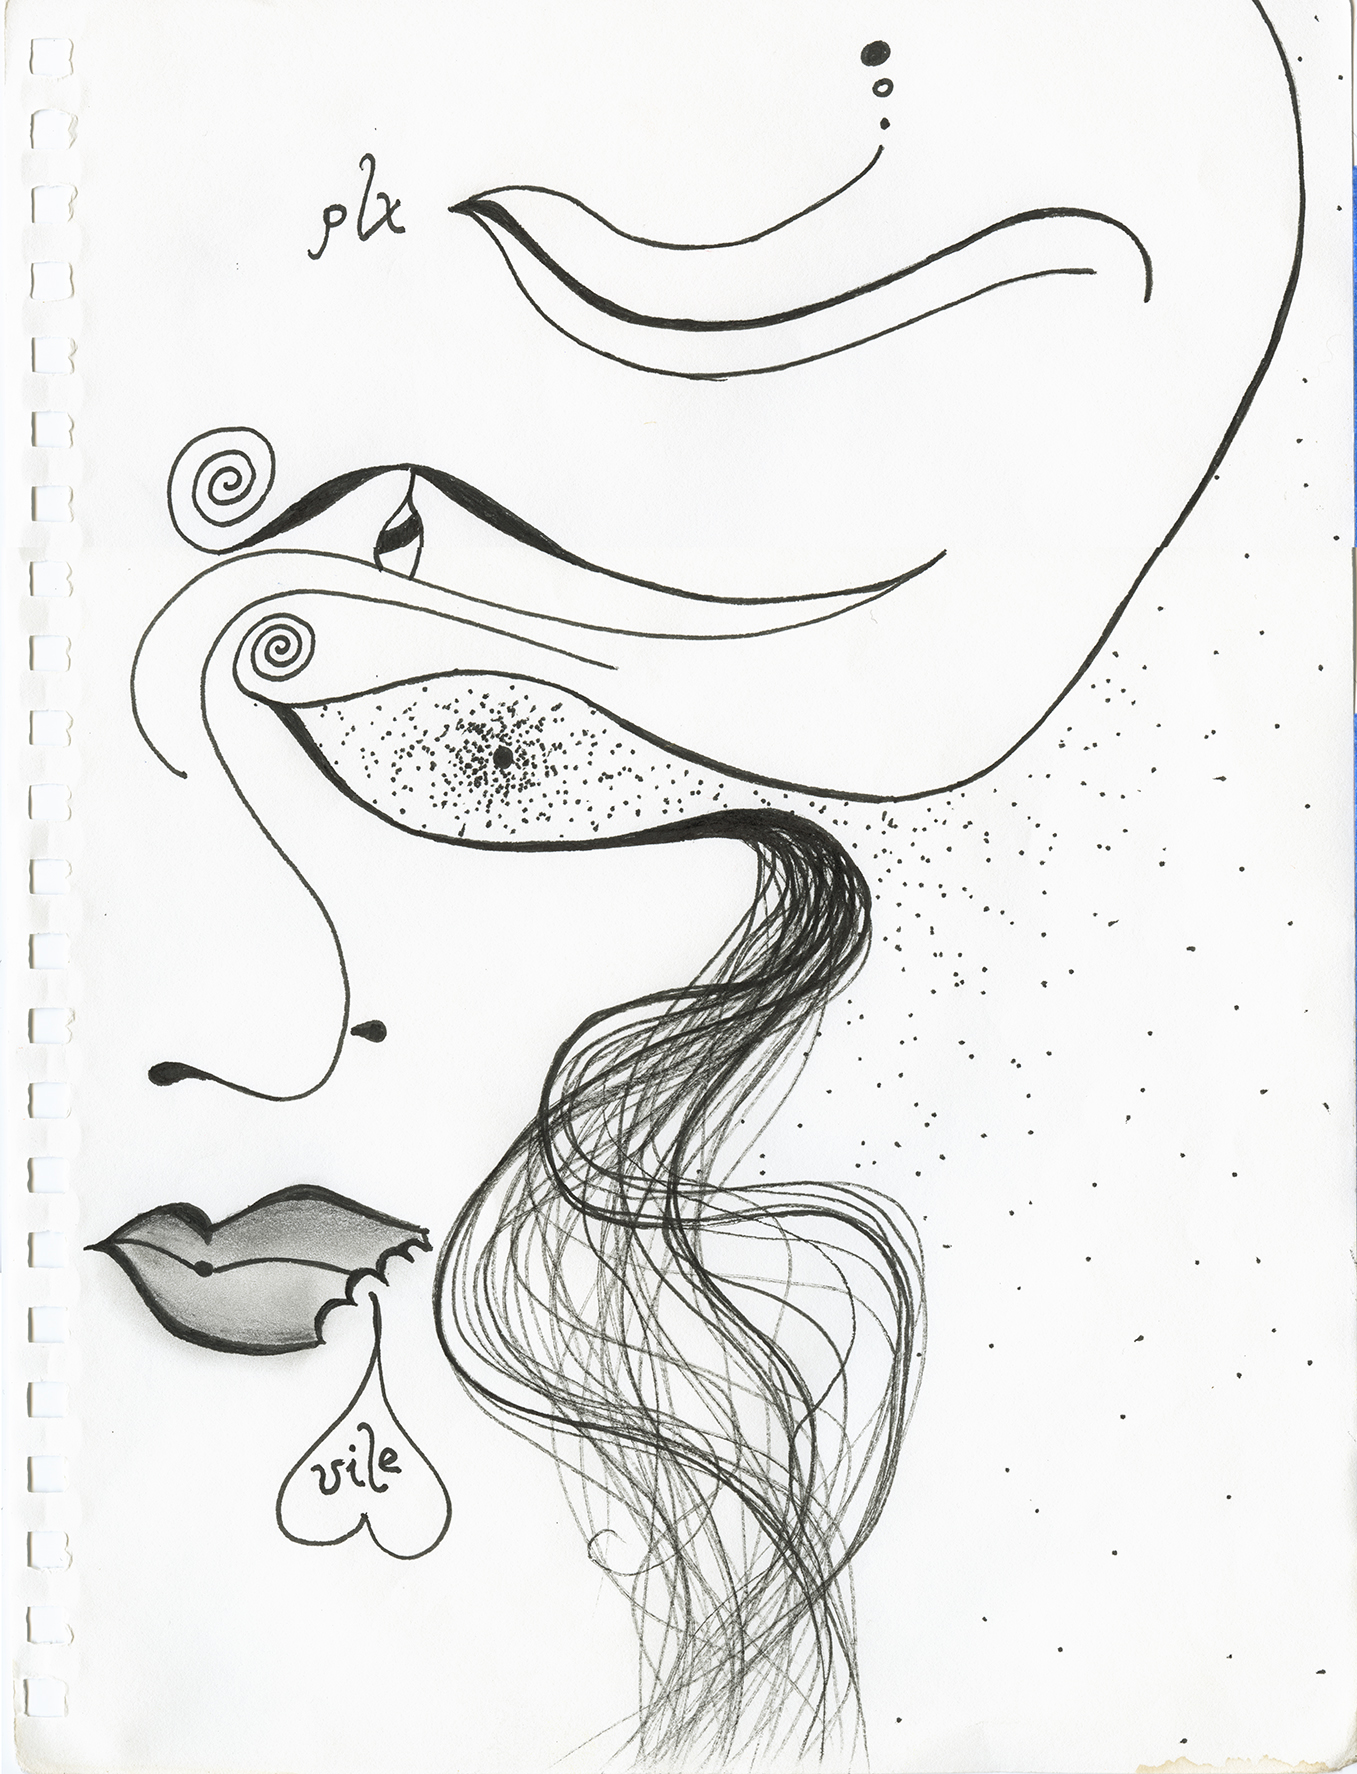 plx
vile